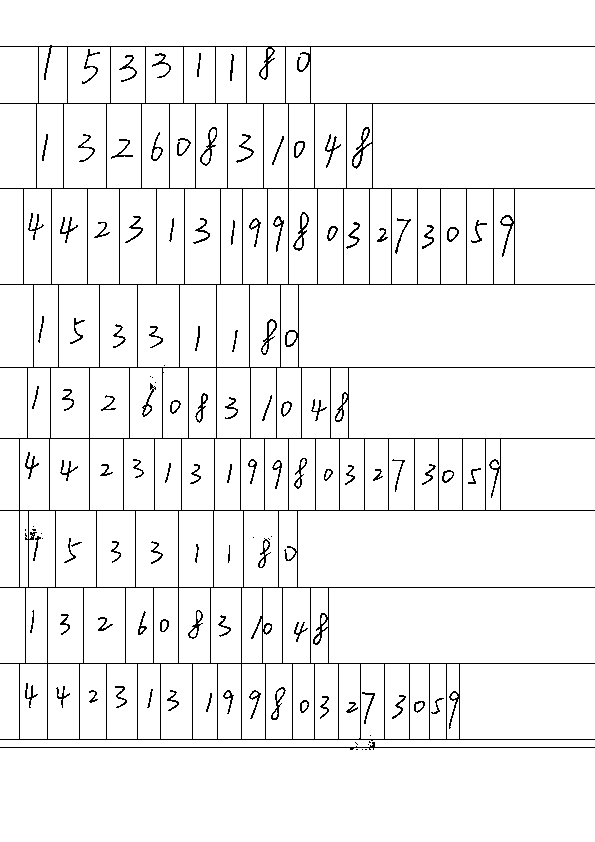 15331180
13260831048
442313199803273059
15331180
13260831048
442313199803273059
15331180
13260831048
442313199803273059